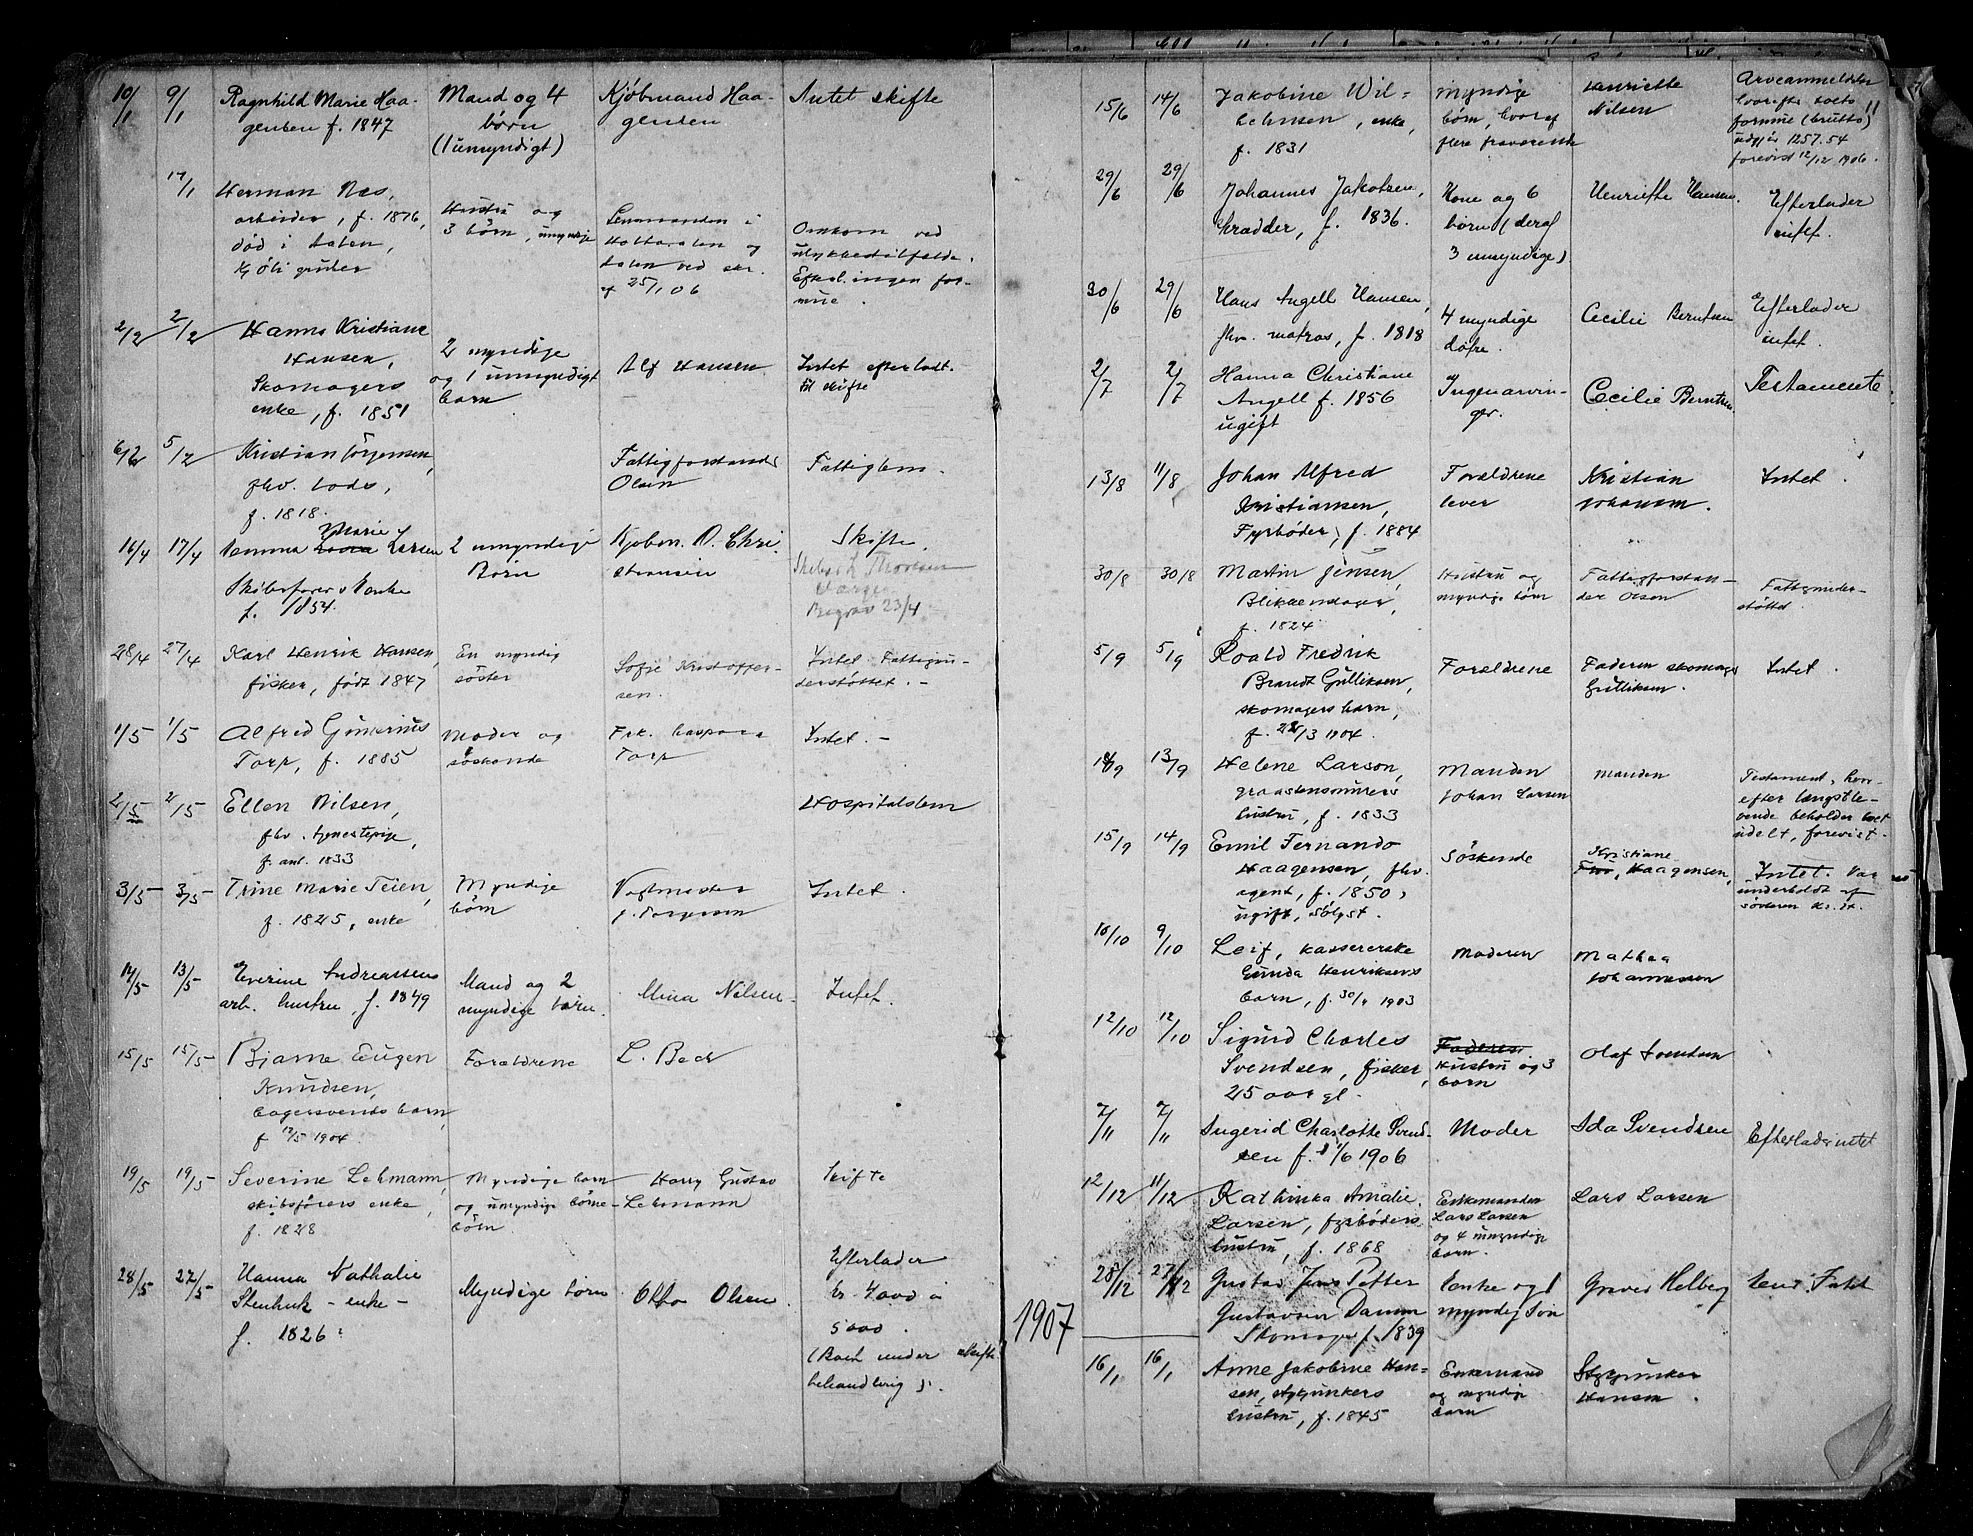 10/1 9/1 Ragnhild Marie Haa- Mand og 4 Kjøbmand Haa- Intet skifte
gensen f. 1847 børn gensen
(1 umyndigt)
17/1 Herman Næs,
arbeider, f. 1876, Hustru og Lensmanden i
død i Aalen, 3 børn, umyndige Holtaalen og Omkom ved
Kjøli gruber Aalen ved skr. ulykkestilfælde.
af 25/1 06 Efterl. ingen for-
mue.
2/2 2/2 Hanna Kristiane
Hansen, 2 myndige Alf Hansen Intet efterladt
Skomagers og 1 umyndigt til skifte
enke, f. 1851 barn
6/2 5/2 Kristian Jørgensen, Fattigforstander Fattiglem.
fhv. lods, Olsen
f. 1818.
Marie
16/4 17/4 Larsen 2 umyndige Kjøbm. O. Chri- Skifte.
Skibsfører Enke Børn stiansen
f. 1854. Begrav 23/4
28/4 27/4 Karl Henrik Hansen, En myndig Sofie Kristoffer- Intet. Fattigun-
fisker, født 1847 søster sen. derstøttet. -
1/5 1/5 Alfred Gunerius Moder og Frk. Kaspara Intet. -
Torp, f. 1885 søskende Torp
2/5 2/5 Ellen Nilsen, Hospitalslem
fhv. tjenestepige,
f. ant. 1833
3/5 3/5 Trine Marie Teien, Myndige Vagtmester Intet.
f. 1825, enke børn J. Torgersen
14/5 13/5 Everine Andreassens Mand og 2 Mina Nilsen. Intet.
arb. hustru, f. 1849 myndige børn.
15/5 15/5 Bjarne Eugen Forældrene L. Beck
Knudsen,
bagersvends barn,
f 12/5 1904.
19/5 19/5 Severine Lehmann, Myndige barn Harry Gustav Skifte
skibsførers enke, og umyndige børne- Lehmann
f. 1828 børn
28/5 27/5 Hanna Nathalie Myndige børn Otto Olsen. Efterlader
Stenhuk - enke - kr. 4000 à
f. 1826. 5000.
(Boet under skifte
behandling).
15/6 14/6 Jakobine Wil- Myndige Henriette Arveanmeldelse
helmsen, enke, børn, hvoraf Nilsen hvorefter boets
f. 1831 flere fraværende formue (brutto)
udgjør 1257.54
forevist 12/12 1906.
29/6 29/6 Johannes Jakobsen, Kone og 6 Henriette Hansen. Efterlader
skrædder, f. 1836. børn (deraf intet.
3 umyndige).
30/6 29/6 Hans Angell Hansen, 4 myndige Cecilie Berntsen Efterlader
fhv. matros, f. 1818 døtre. intet.
2/7 2/7 Hanna Christiane Ingen arvin- Cecilie Berntsen Testamente.
Angell f. 1856 ger.
ugift
13/8 11/8 Johan Alfred Forældrene Kristian Intet.
Kristiansen, lever Johansen.
Fyrbøder, f. 1884
30/8 30/8 Martin Jensen, Hustru og Fattigforstan- Fattigunder-
Blikkenslager, myndige børn der Olsen støttet
f. 1824
5/9 5/9 Roald Fredrik Forældrene Faderen skomager Intet.
Brandt Gulliksen, Gulliksen.
skomagers barn,
f. 22/3 1904.
14/9 13/9 Helene Larson, Manden Manden Testament, hvor-
graastensmurers Johan Larsen efter længstle-
hustru, f. 1833 vende beholder boet
udelt, forevist.
15/9 14/9 Emil Fernando Søskende Kristiane
Haagensen, fhv. Fru, Haagensen, Intet. Var
agent, f. 1850, underholdt af
ugift, sølgst. søsteren Kr. H.
10/10 9/10 Leif, kassererske Moderen Mathea
Gunda Henriksens Johannesen
barn, f. 30/1 1903
12/10 12/10 Sigurd Charles Faderen Olaf Svendsen
Svendsen, fisker, Hustru og 3
25 aar gl. børn
7/11 7/11 Ingerid Charlotte Svend- Moder Ida Svendsen Efterlader intet
sen f. 1/6 1906
12/12 11/12 Kathinka Amalie Enkemanden Lars Larsen
Larsen, fyrbøders Lars Larsen
hustru, f. 1868 og 4 umyndige
børn.
28/12 27/12 Gustav Petter Enke og 1 Graver Helberg
1907 Gustavsen Damm myndig Søn
Skomager f. 1839
16/1 16/1 Anne Jakobine Han- Enkemand Stykjunker
sen, stykjunkers og myndige Hansen.
hustru, f. 1845 børn